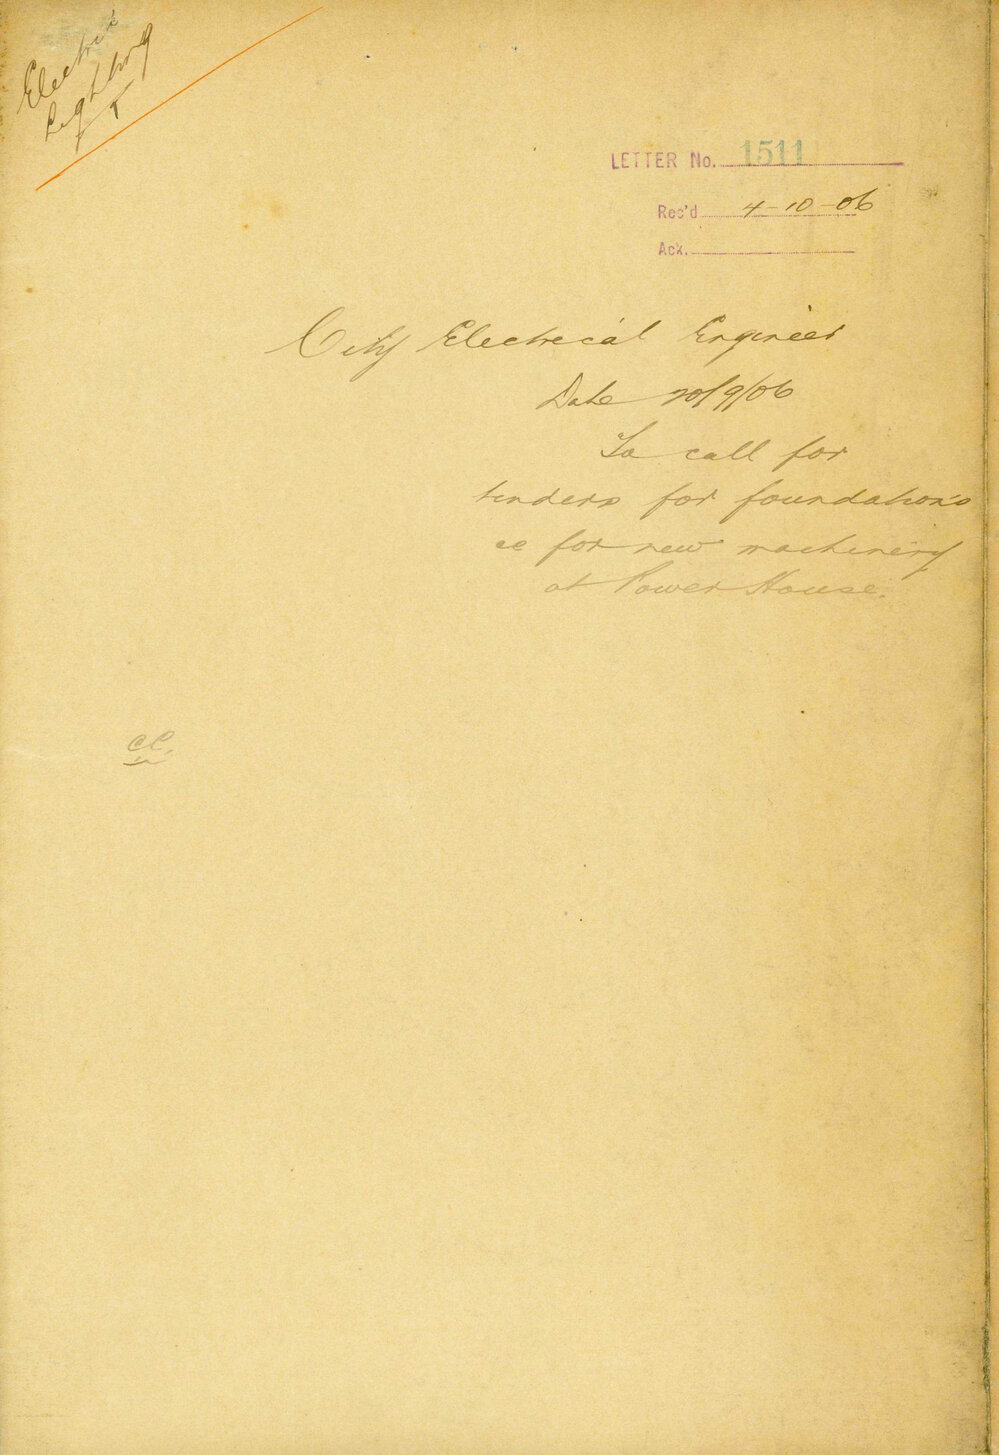 Electric
Lighting
T
LETTER No. 1511
Rec'd 4-10-06
Ack.
City Electrical Engineer
Date 20/9/06
To call for
tenders for foundations
&c for new machinery
at Power House.